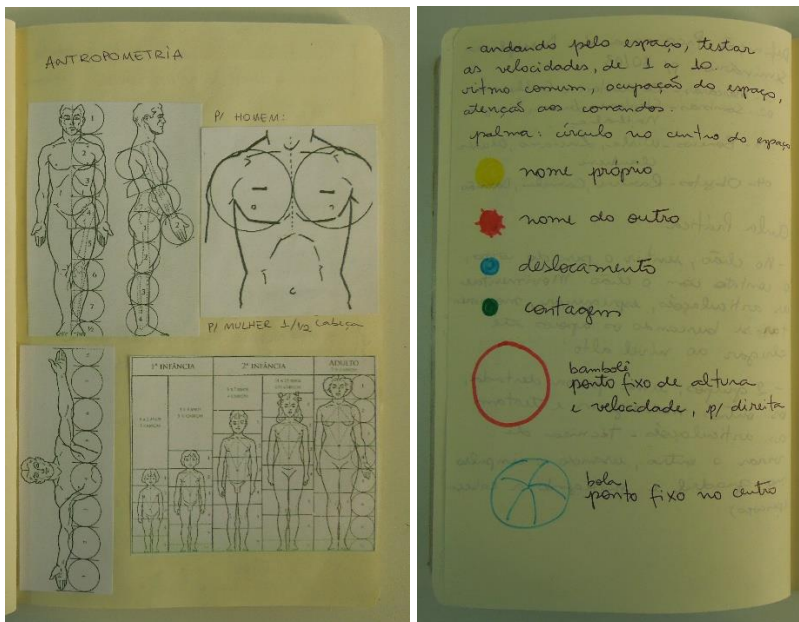 ANTROPOMETRIA
P/ HOMEM:
P/ MULHER 1/1/2 cabeça
1ª INFÂNCIA
2ª INFÂNCIA
ADULTO
- andando pelo espaço, testar
as velocidades, de 1 a 10.
ritmo comum, ocupação do espaço,
atenção aos comandos.
palma: círculo no centro do espaço
nome próprio
nome do outro
deslocamento
contagem
bambolê
ponto fixo de altura
e velocidade, p/ direita
bola
ponto fixo no centro